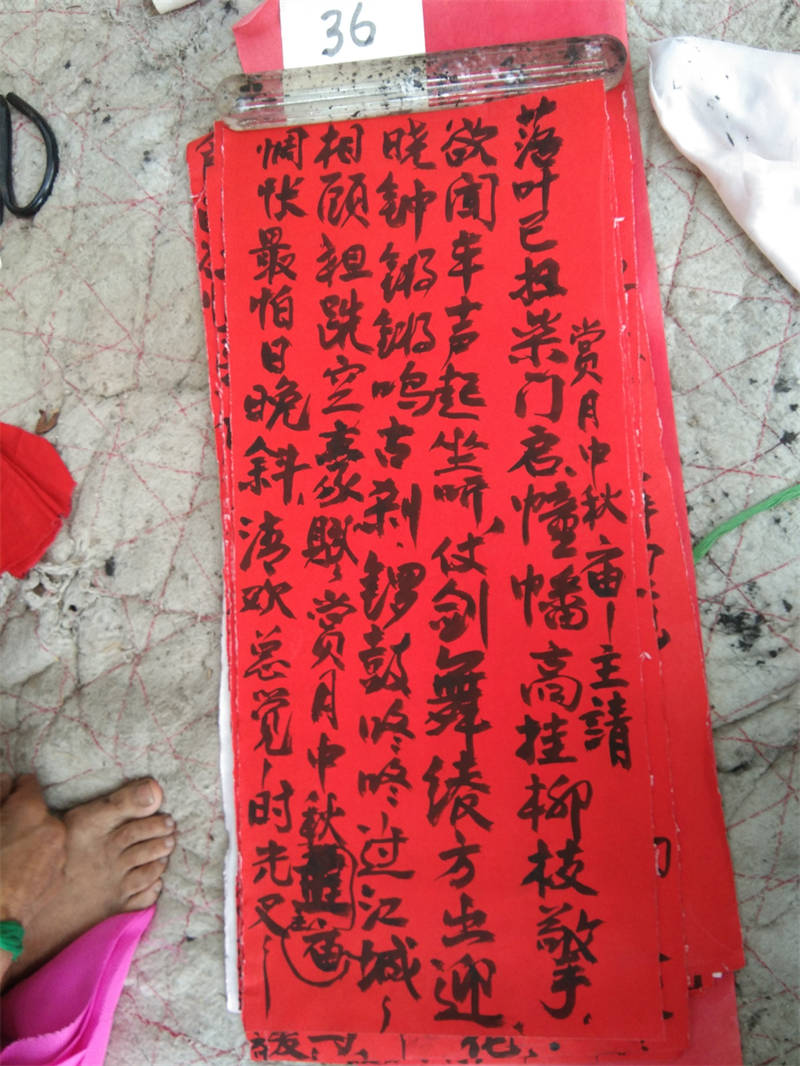 36
赏月中秋庙主請
落叶已扭柴门启幢幡高挂柳枝擎
欲闻车声起坐听仗剑舞绫方出迎
晓钟锵锵鸣古刹锣鼓咚咚过江城
相顾袒跣空豪赋赏月中秋主庙
惆怅最怕日晚斜清欢总觉时光